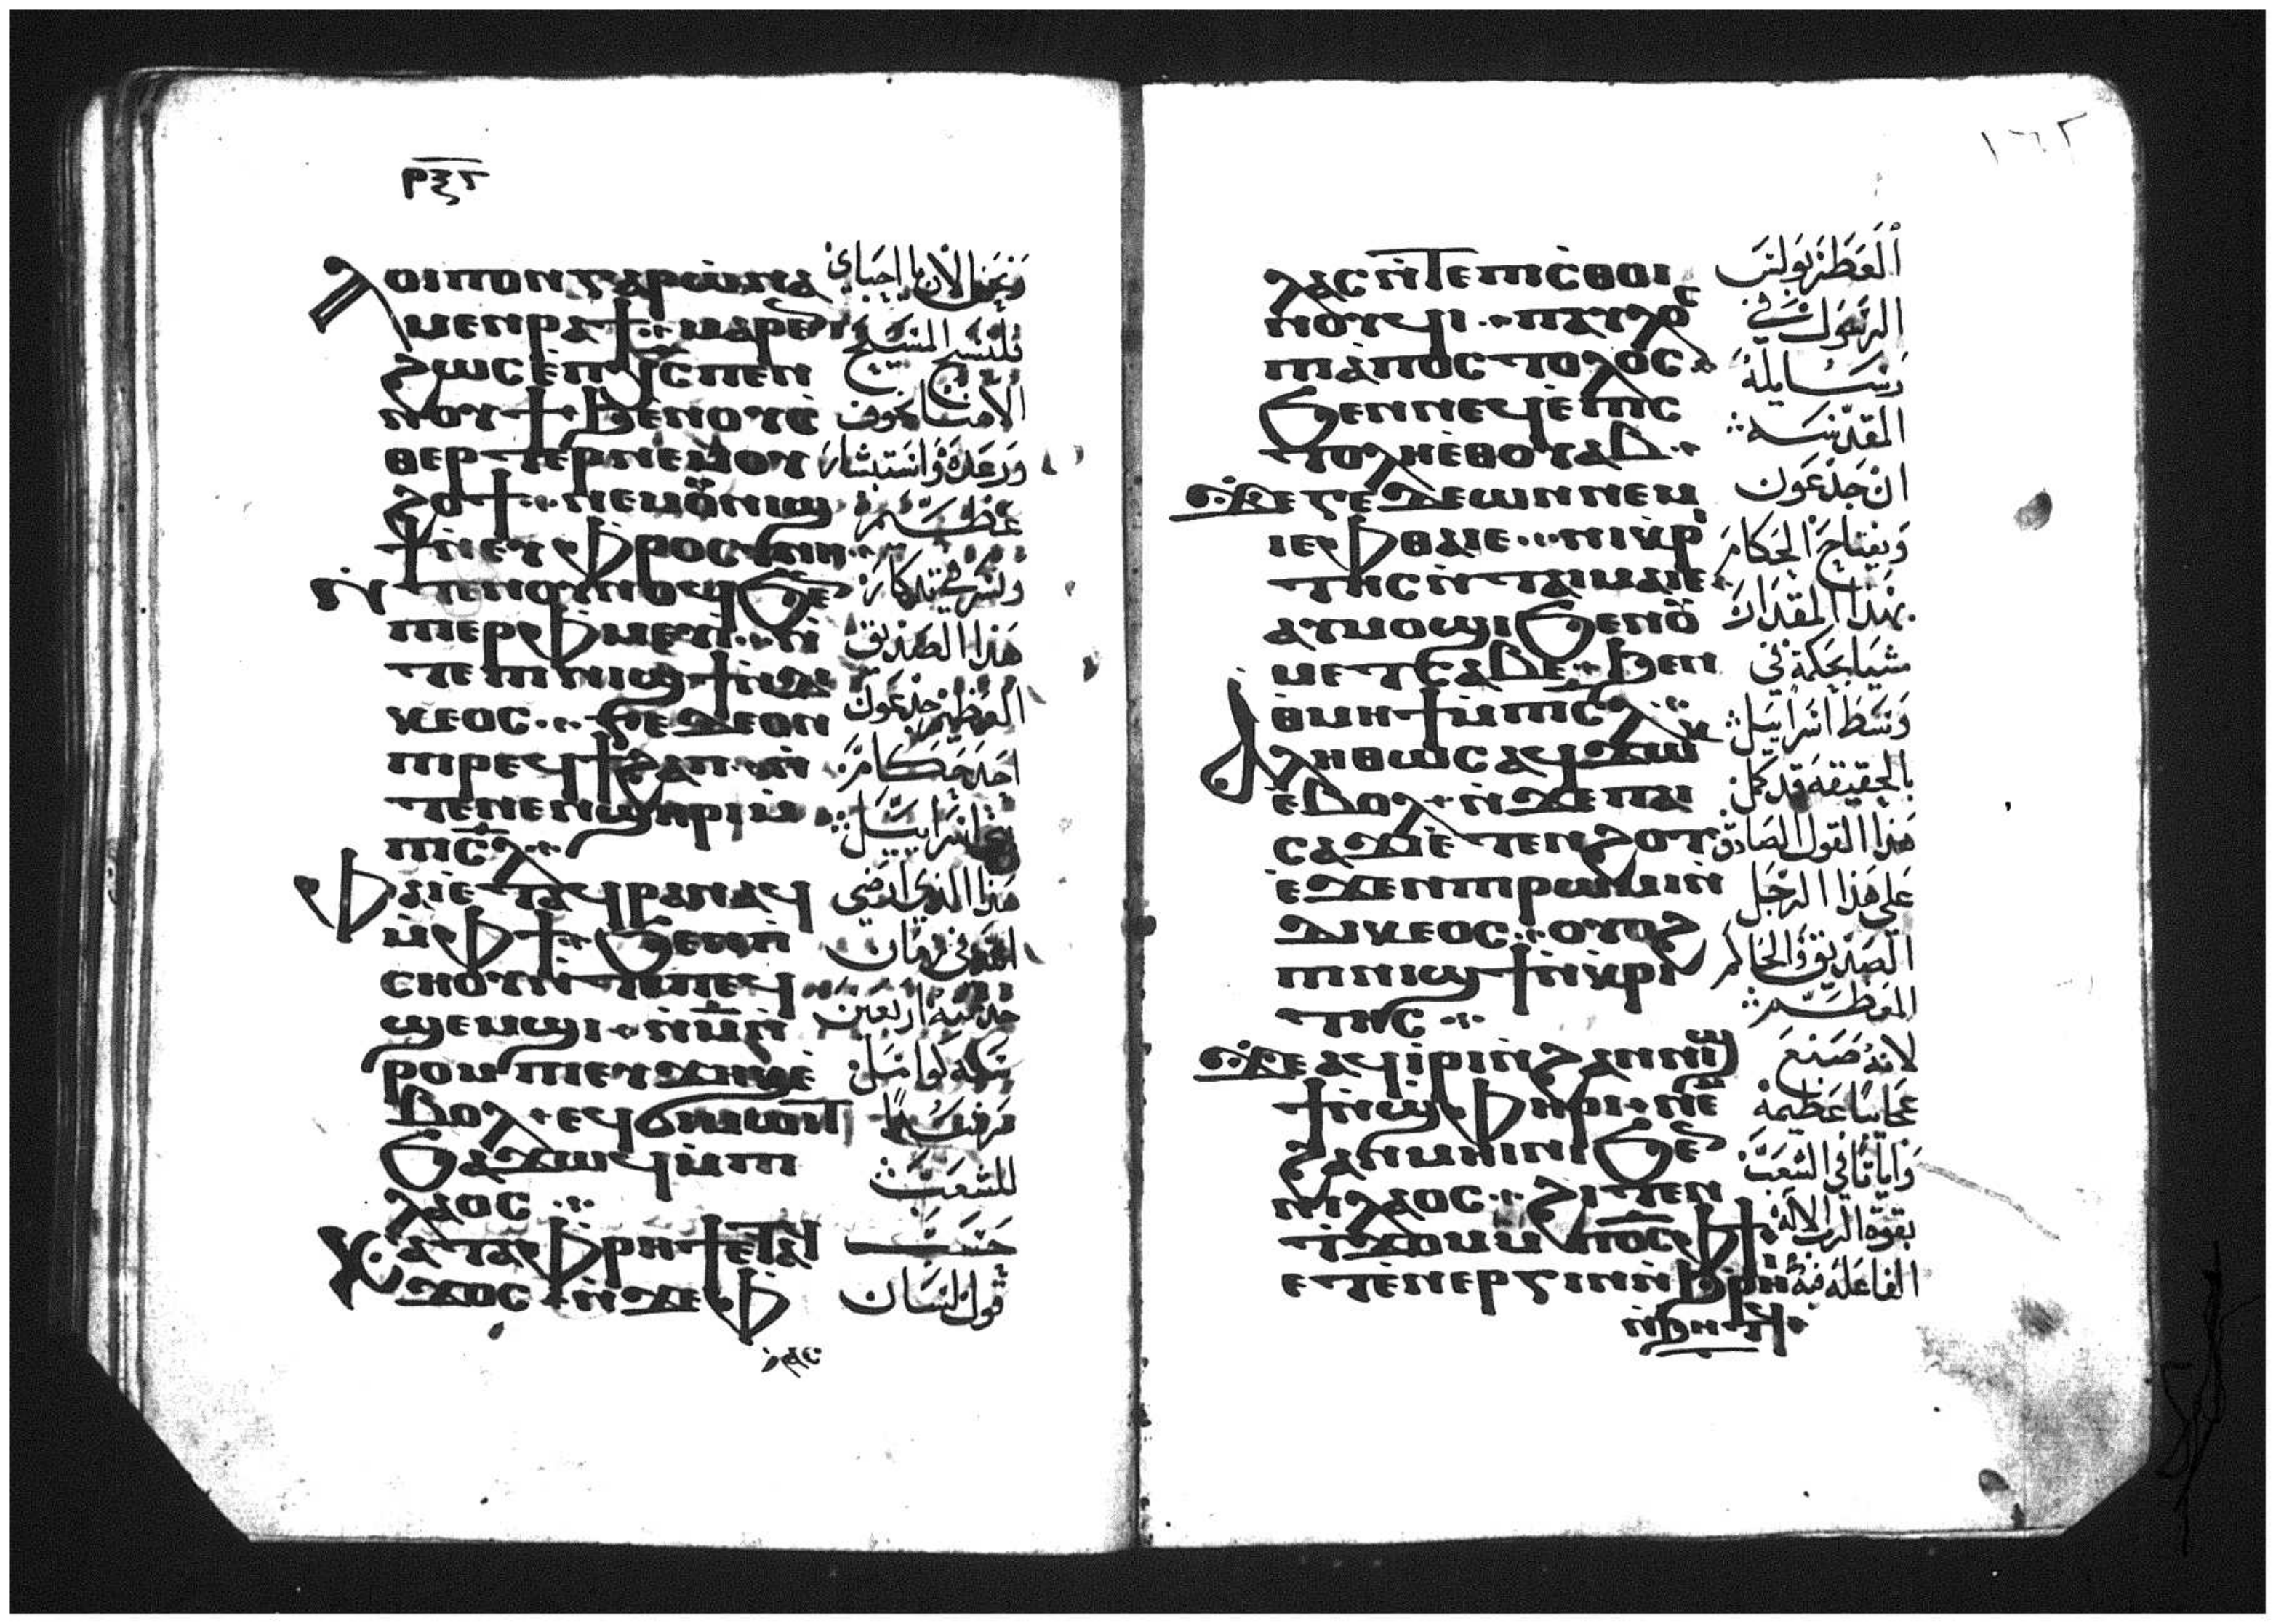 ⲣⲝⲅ
ⲗⲟⲓⲡⲟⲛ ⲅⲁⲣ ⲱ̀ ⲛⲁ
ⲙⲉⲛⲣⲁϯ ⁘ ⲙⲁⲣⲉⲛ
ϩⲱⲥ ⲉ̀ⲡⲭ̅ⲥ̅ ⲡⲉⲛ
ⲛⲟⲩϯ ϧⲉⲛ ⲟⲩⲥ̀
ⲑⲉⲣⲧⲉⲣ ⲛⲉⲙ ⲟⲩ
ϩⲟϯ ⁘ ⲛⲉⲙ ⲟⲩⲛⲓϣ
ϯ ⲛ̀ⲉⲩⲫⲣⲟⲥⲩⲛⲏ
ⲛ̀ⲧⲉⲛⲟⲩⲛⲟϥ ϧⲉⲛ
ⲡⲉⲣⲫⲙⲉⲩⲓ̀ ⲛ̀
ⲧⲉ ⲡⲓⲛⲓϣϯ ⲛ̀ⲇⲓ
ⲕⲉⲟⲥ ⁘ ⲅⲉⲇⲉⲟⲛ
ⲡⲓⲣⲉϥϯϩⲁⲡ ⲛ̀
ⲧⲉ ⲛⲉⲛϣⲏⲣⲓ ⲙ̀
ⲡⲓⲥ̅ⲗ̅ ⁘
ⲫⲁⲓ ⲉ̀ⲧⲁϥⲣⲁⲛⲁϥ
ⲙ̀ⲫϯ ϧⲉⲛ ⲡ
ⲥⲏⲟⲩ ⲛ̀ⲧⲉ ⲡⲉϥ
ϣⲉⲙϣⲓ ⁘ ⲛ̀ⲙ̅ ⲛ̀
ⲣⲟⲙⲡⲓ ⲉⲩϫⲏⲕ ⲉ̀
ⲃⲟⲗ ⁘ ⲉϥϭⲓⲙⲱⲓⲧ
ϧⲁϫⲱϥ ⲙ̀ⲡⲓ
ⲗⲁⲟⲥ ⁘
ⲕⲁⲧⲁ ⲫⲣⲏϯ ⲉⲧⲁϥ
ϫⲟⲥ ⲛ̀ϫⲉ ⲫ
ونحن الان يا احباي
فلنسبح المسيح
الاهنا بخوف
ورعدة واستبشار
عظيم
ونسر في تذكار
هذا الصديق
العظيم جدعون
احد حكام
بني اسراييل
هذا الذي ارضى
الله في زمان
خدمته اربعين
سنة كوامل
مرشدًا
للشعب
حسب
قول لسان
١٦٢
ⲗⲁⲥ ⲛ̀ⲧⲉ ⲡⲓⲥ̀ⲑⲟⲓ
ⲛⲟⲩϥⲓ ⁘ ⲡⲁⲩⲗⲟⲥ
ⲡⲓⲁ̀ⲡⲟⲥⲧⲟⲗⲟⲥ
ϧⲉⲛ ⲛⲉϥⲉ̀ⲡⲓⲥ
ⲧⲟⲗⲏ ⲉ̀ⲑⲟⲩⲁⲃ ⁘
ϫⲉ ⲅⲉⲇⲉⲱⲛ ⲛⲉⲙ
ⲓⲉⲫⲑⲁⲓⲉ ⁘ ⲛⲓⲕⲣⲓ
ⲧⲏⲥ ⲛ̀ⲧⲁⲓⲙⲁⲓⲉ
ⲁⲩⲙⲟϣⲓ ϧⲉⲛ ⲟⲩ
ⲙⲉⲧⲥⲁⲃⲉ ⁘ ϧⲉⲛ
ⲑⲙⲏϯ ⲙ̀ⲡⲓⲥ̅ⲗ̅ ⁘
ⲁⲗⲏⲑⲱⲥ ⲁϥϫⲱⲕ
ⲉ̀ⲃⲟⲗ ⁘ ⲛ̀ϫⲉ ⲡⲁⲓ
ⲥⲁϫⲓ ⲉ̀ⲧⲉⲛϩⲟⲧ
ⲉ̀ϫⲉⲛ ⲡⲓⲣⲱⲙⲓ ⲛ̀
ⲇⲓⲕⲉⲟⲥ ⁘ ⲟⲩⲟϩ
ⲡⲓⲛⲓϣϯ ⲛ̀ⲕⲣⲓ
ⲧⲏⲥ ⁘
ϫⲉ ⲁϥⲓ̀ⲣⲓ ⲛ̀ϩⲁⲛⲛⲓϣ
ϯ ⲛ̀ϣⲫⲏⲣⲓ ⁘ ⲛⲉⲙ
ϩⲁⲛⲙⲏⲓⲛⲓ ϧⲉⲛ
ⲡⲓⲗⲁⲟⲥ ⁘ ϩⲓⲧⲉⲛ
ⲧ̀ϫⲟⲙ ⲙ̀ⲡⲟ̅ⲥ̅ ⲫϯ
ⲉⲧⲉⲛⲉⲣⲅⲓⲛ ⲛ̀ϧⲣⲏⲓ
ⲛ̀ϧⲏⲧϥ ⁘
العطر بولس
الرسول في
رسايله
المقدسه
ان جدعون
ويفتاح الحكام
بهذا المقدار
مشيا بحكمة في
وسط اسراييل
بالحقيقه قد كمل
هذا القول الصادق
على هذا الرجل
الصديق والحاكم
العظيم
لانه صنع
عجايبا عظيمة
واياتا في الشعب
بقوة الرب الاله
الفاعلة فيه